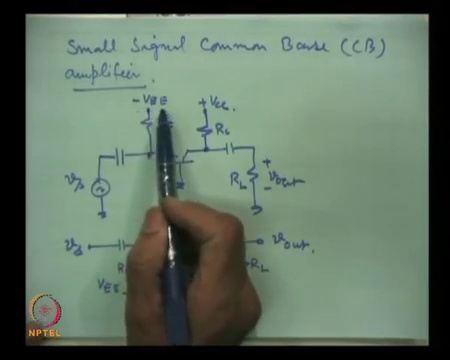 Small Signal Common Base (CB)
amplifier.
-VEE +VCC.
RC
vs RL + vout -
vs vout.
R RL
VEE
NPTEL